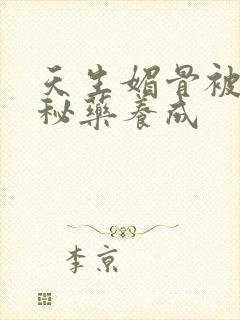 天生媚骨被
秘藥養成
李京